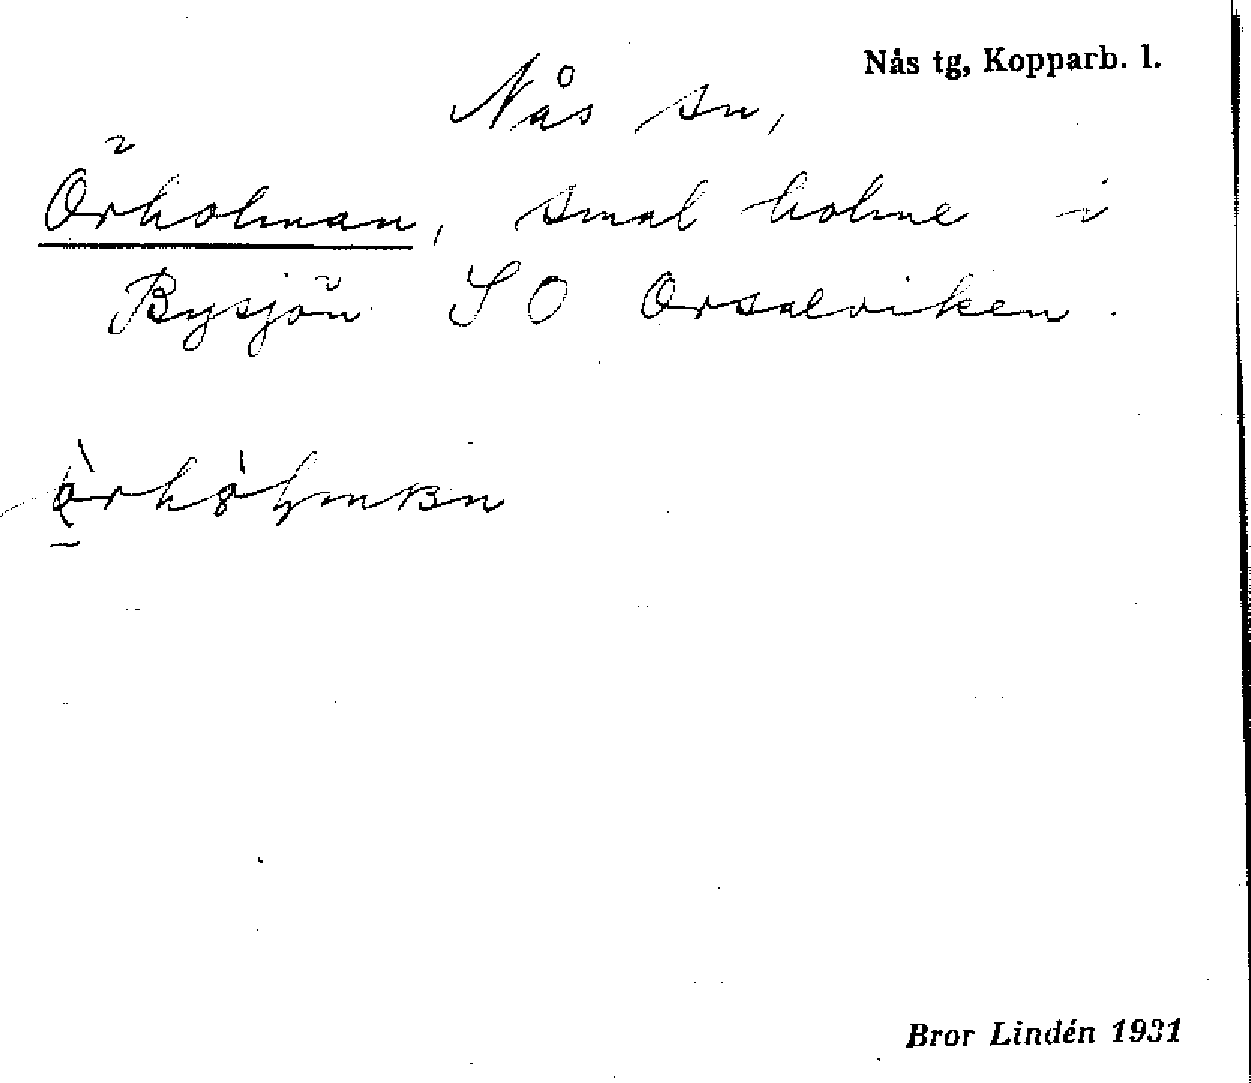 Nås tg, Kopparb. l.
Nås sn,
Örholman, smal holme i
Bysjön SO Orsalviken.
Bror Lindén 1931